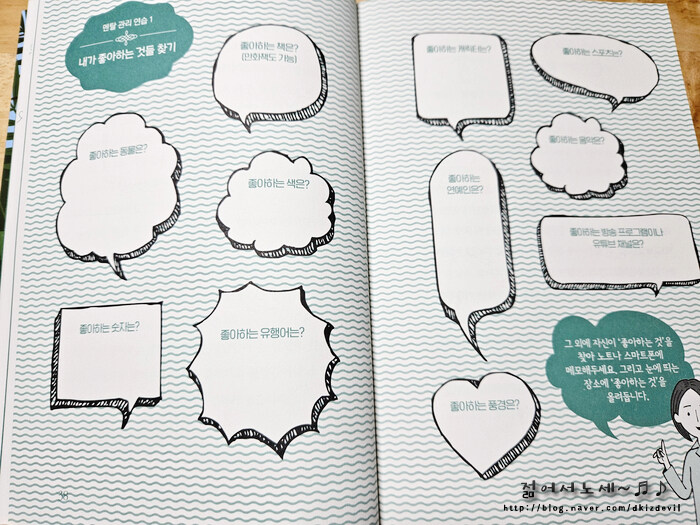 멘탈 관리 연습 1
내가 좋아하는 것들 찾기
좋아하는 책은?
(만화책도 가능)
좋아하는 동물은?
좋아하는 색은?
좋아하는 숫자는?
좋아하는 유행어는?
38
좋아하는 캐릭터는?
좋아하는 스포츠는?
좋아하는
연예인은?
좋아하는 음악은?
좋아하는 방송 프로그램이나
유튜브 채널은?
좋아하는 풍경은?
그 외에 자신이 '좋아하는 것'을
찾아 노트나 스마트폰에
메모해두세요. 그리고 눈에 띄는
장소에 '좋아하는 것'을
올려둡니다.
젊어서노세~♬♪
http://blog.naver.com/dkizdevil